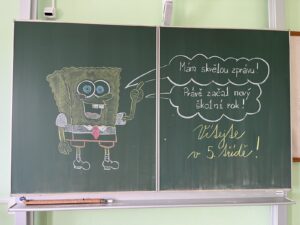 Mám skvělou zprávu!
Právě začal nový
školní rok!
Vítejte
v 5. třídě!